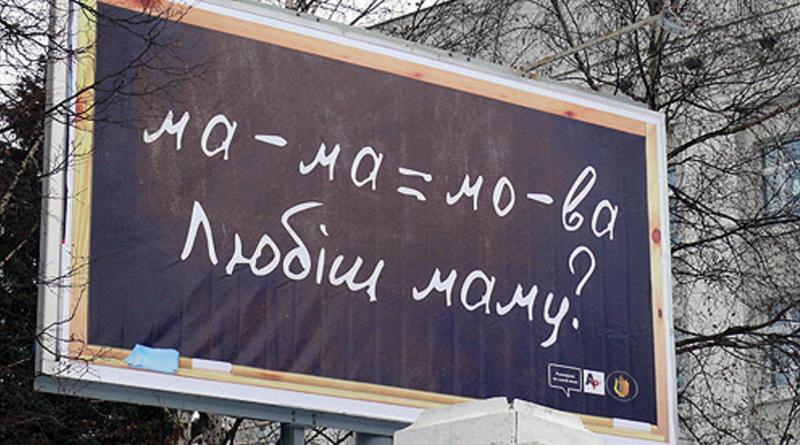 ма-ма=мо-ва
Любіш маму?